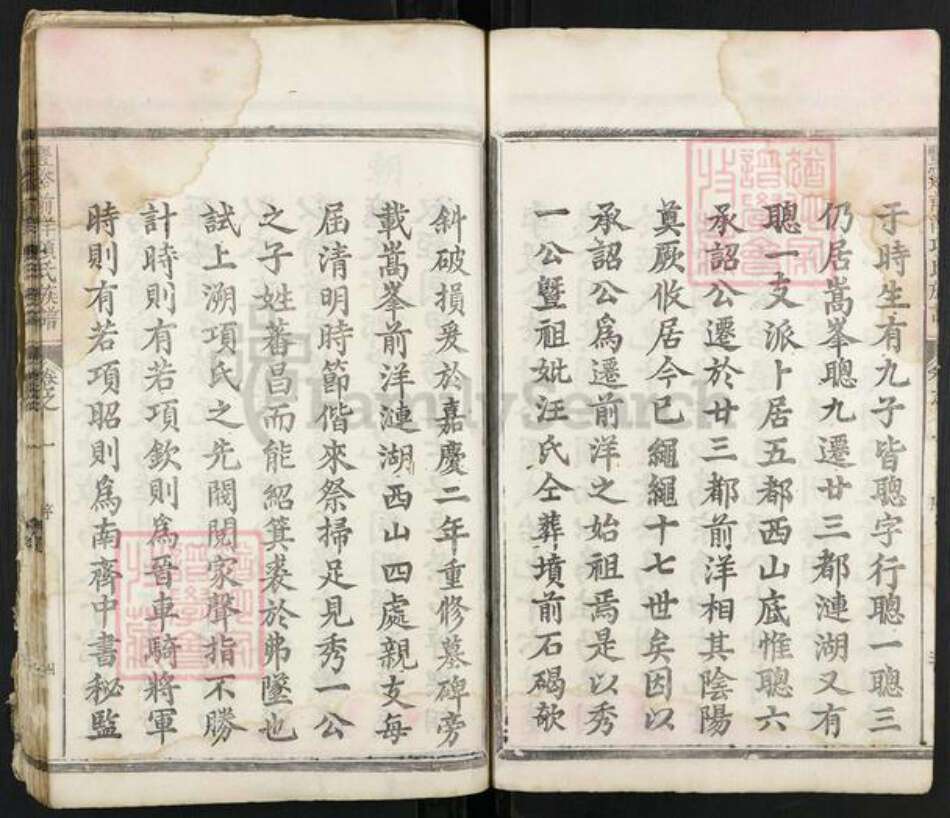 于時生有九子皆聰字行聰一聰三
仍居嵩峯聰九遷廿三都漣湖又有
聰一支派卜居五都西山底惟聰六
承詔公遷於廿三都前洋相其陰陽
奠厥攸居今已繩繩十七世矣因以
承詔公爲遷前洋之始祖焉是以秀
一公暨祖妣汪氏仝葬墳前石碣欹
斜破損爰於嘉慶二年重修墓碑旁
載嵩峯前洋漣湖西山四處親支每
屆清明時節偕來祭掃足見秀一公
之子姓蕃昌而能紹箕裘於弗墜也
試上溯項氏之先閥閱家聲指不勝
計時則有若項欽則爲晉車騎將軍
時則有若項昭則爲南齊中書秘監
前洋項氏族譜
卷之
序
FamilySearch